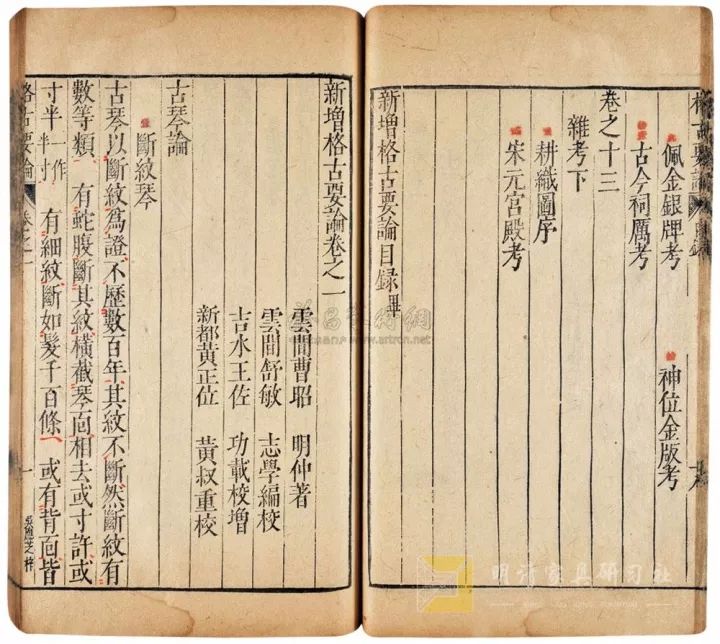 佩金銀牌考
神位金版考
古今祠厲考
卷之十三
雜考下
耕織圖序
宋元宮殿考
新增格古要論目録畢
新增格古要論卷之一
雲間曹昭 明仲著
雲間舒敏 志學編校
吉水王佐 功載校增
新都黃正位 黃叔重校
古琴論
斷紋琴
古琴以斷紋爲證不歷數百年其紋不斷然斷紋有
數等類 有蛇腹斷其紋橫截琴面相去或寸許或
寸半一作半寸 有細紋斷如髮千百條 或有背面皆
格古要論
卷之一
一
www.artron.net
明清家具研习社